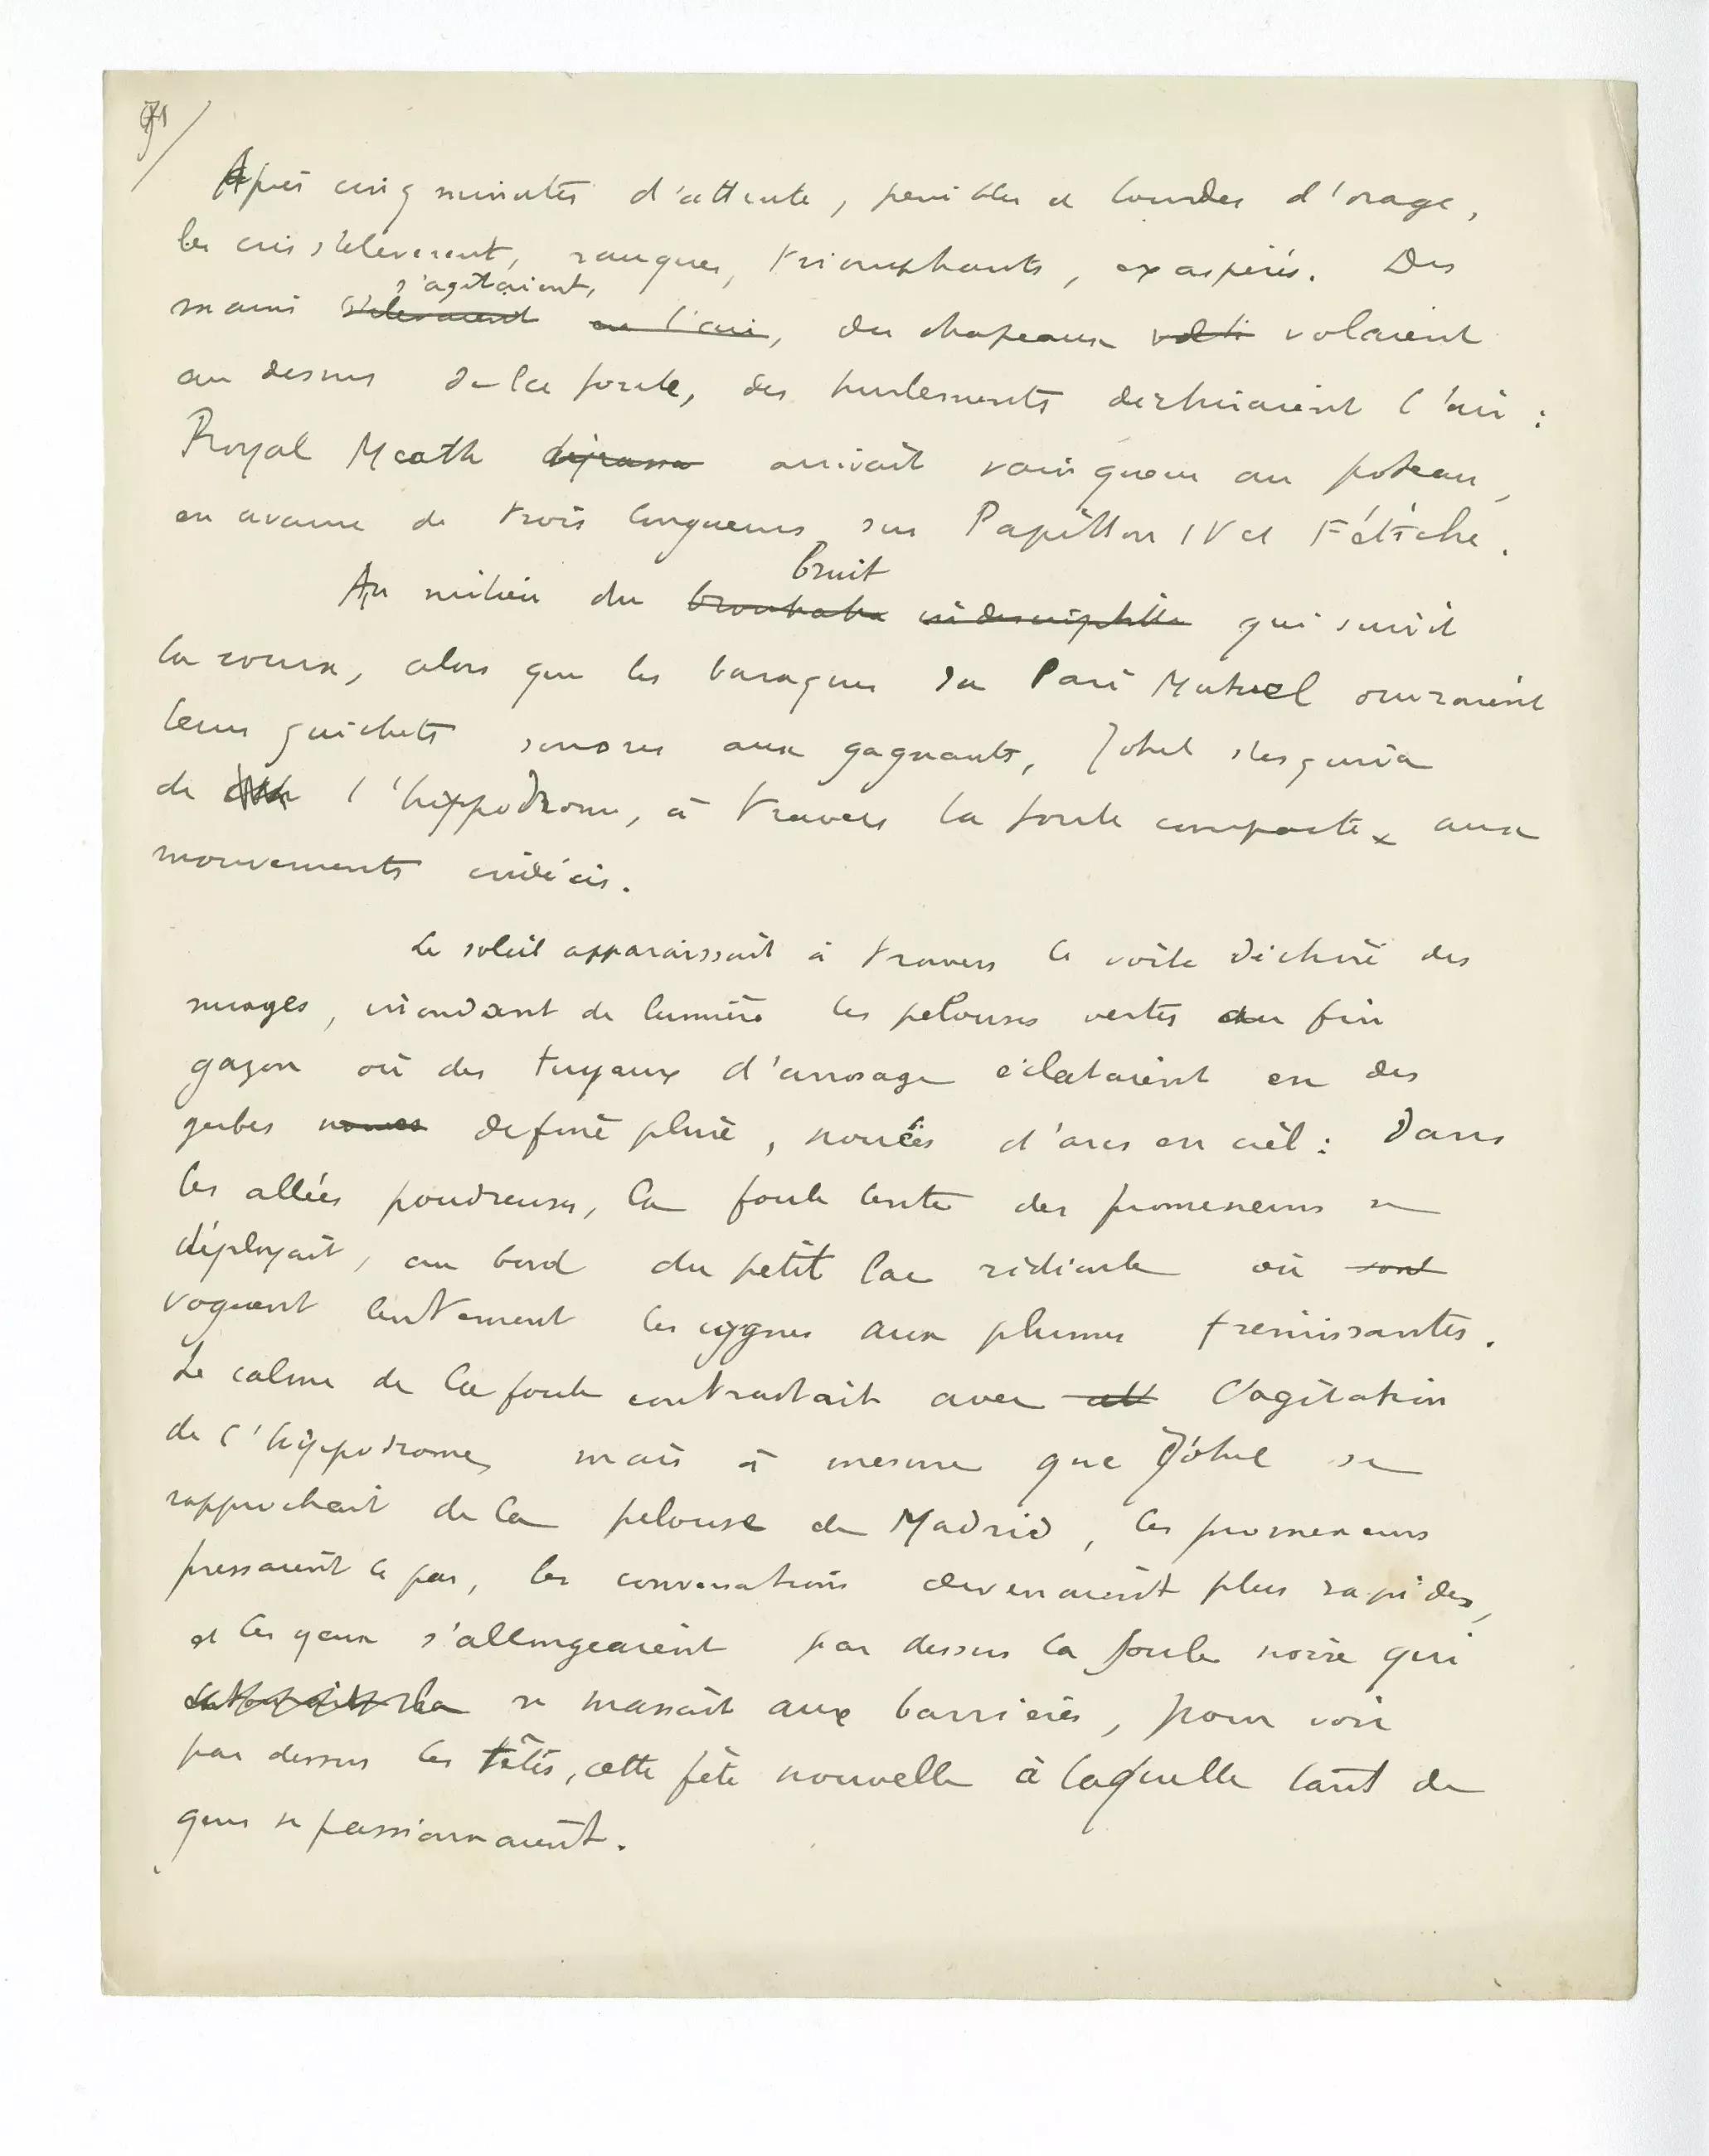 Après cinq minutes d'attente, penibles et lourdes d'orage,
les cris s'éleverent, rauques, triomphants, exaspérés. Des
s'agitaient,
mains s'elevaient en l'air, des chapeaux volti volaient
au dessus de la foule, des hurlements dechiraient l'air :
Royal Meath dépassa arrivait vainqueur au poteau,
en avance de trois longueurs sur Papillon IV et Fétiche.
bruit
Au milieu du brouhaha indescriptible qui suivit
la course, alors que les baraques du Pari Mutuel ouvraient
leurs guichets sonores aux gagnants, Johel s'esquiva
de l'hippodrome, à travers la foule compacte aux
mouvements indécis.
Le soleil apparaissait à travers le voile déchiré des
nuages, inondant de lumière les pelouses vertes au fin
gazon où des tuyaux d'arrosage éclataient en des
gerbes de fine pluie, nouées d'arcs en ciel : Dans
les allées poudreuses, la foule lente des promeneurs se
déployait, au bord du petit lac ridicule où sont
voguent lentement les cygnes aux plumes fremissantes.
Le calme de la foule contrastait avec l'agitation
de l'hippodrome, mais à mesure que Johel se
rapprochait de la pelouse de Madrid, les promeneurs
pressaient le pas, les conversations devenaient plus rapides,
et les yeux s'allongeaient par dessus la foule noire qui
se massait aux barrières, pour voir
par dessus les têtes, cette fête nouvelle à laquelle tant de
gens se passionnaient.